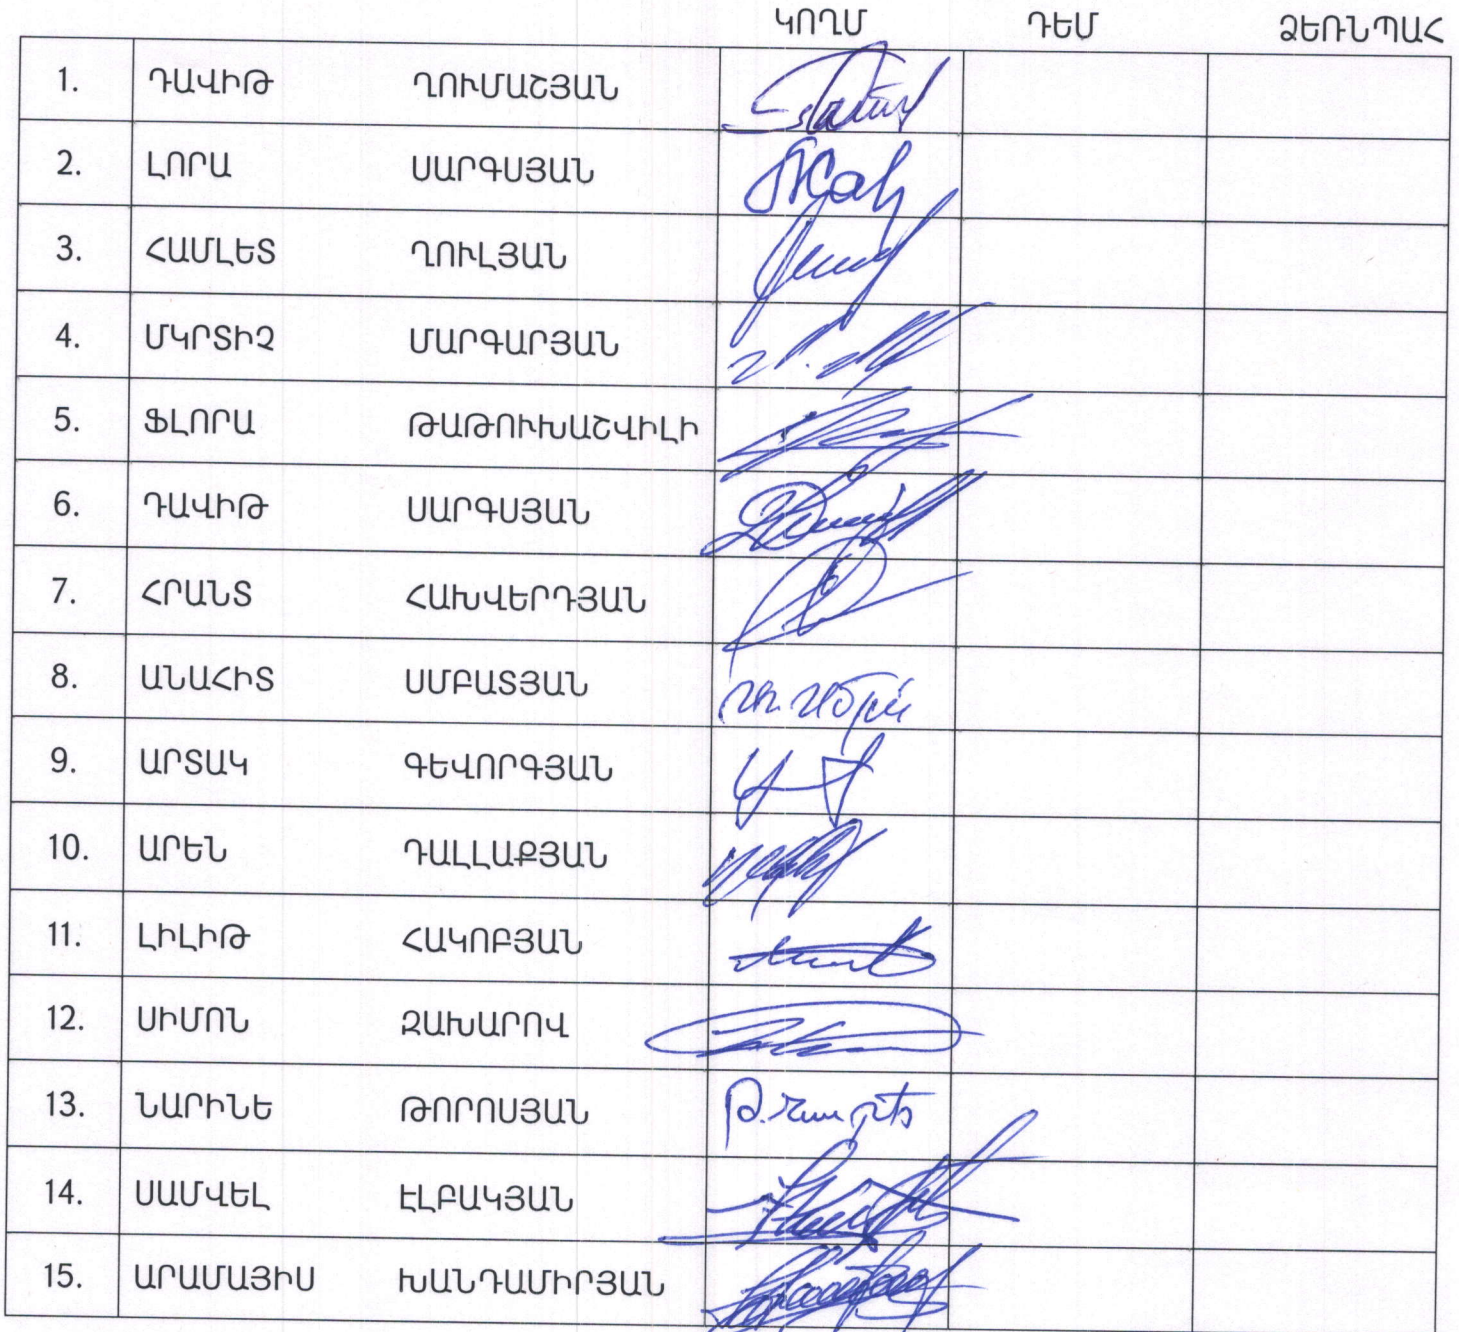 ԿՈՂՄ ԴԵՄ ՁԵՌՆՊԱՀ
1. ԴԱՎԻԹ ՂՈՒՄԱՇՅԱՆ
2. ԼՈՐԱ ՍԱՐԳՍՅԱՆ
3. ՀԱՄԼԵՏ ՂՈՒԼՅԱՆ
4. ՄԿՐՏԻՉ ՄԱՐԳԱՐՅԱՆ
5. ՖԼՈՐԱ ԹԱԹՈՒԽԱՇՎԻԼԻ
6. ԴԱՎԻԹ ՍԱՐԳՍՅԱՆ
7. ՀՐԱՆՏ ՀԱԽՎԵՐԴՅԱՆ
8. ԱՆԱՀԻՏ ՍՄԲԱՏՅԱՆ
9. ԱՐՏԱԿ ԳԵՎՈՐԳՅԱՆ
10. ԱՐԵՆ ԴԱԼԼԱՔՅԱՆ
11. ԼԻԼԻԹ ՀԱԿՈԲՅԱՆ
12. ՍԻՄՈՆ ԶԱԽԱՐՈՎ
13. ՆԱՐԻՆԵ ԹՈՐՈՍՅԱՆ
14. ՍԱՄՎԵԼ ԷԼԲԱԿՅԱՆ
15. ԱՐԱՄԱՅԻՍ ԽԱՆԴԱՄԻՐՅԱՆ